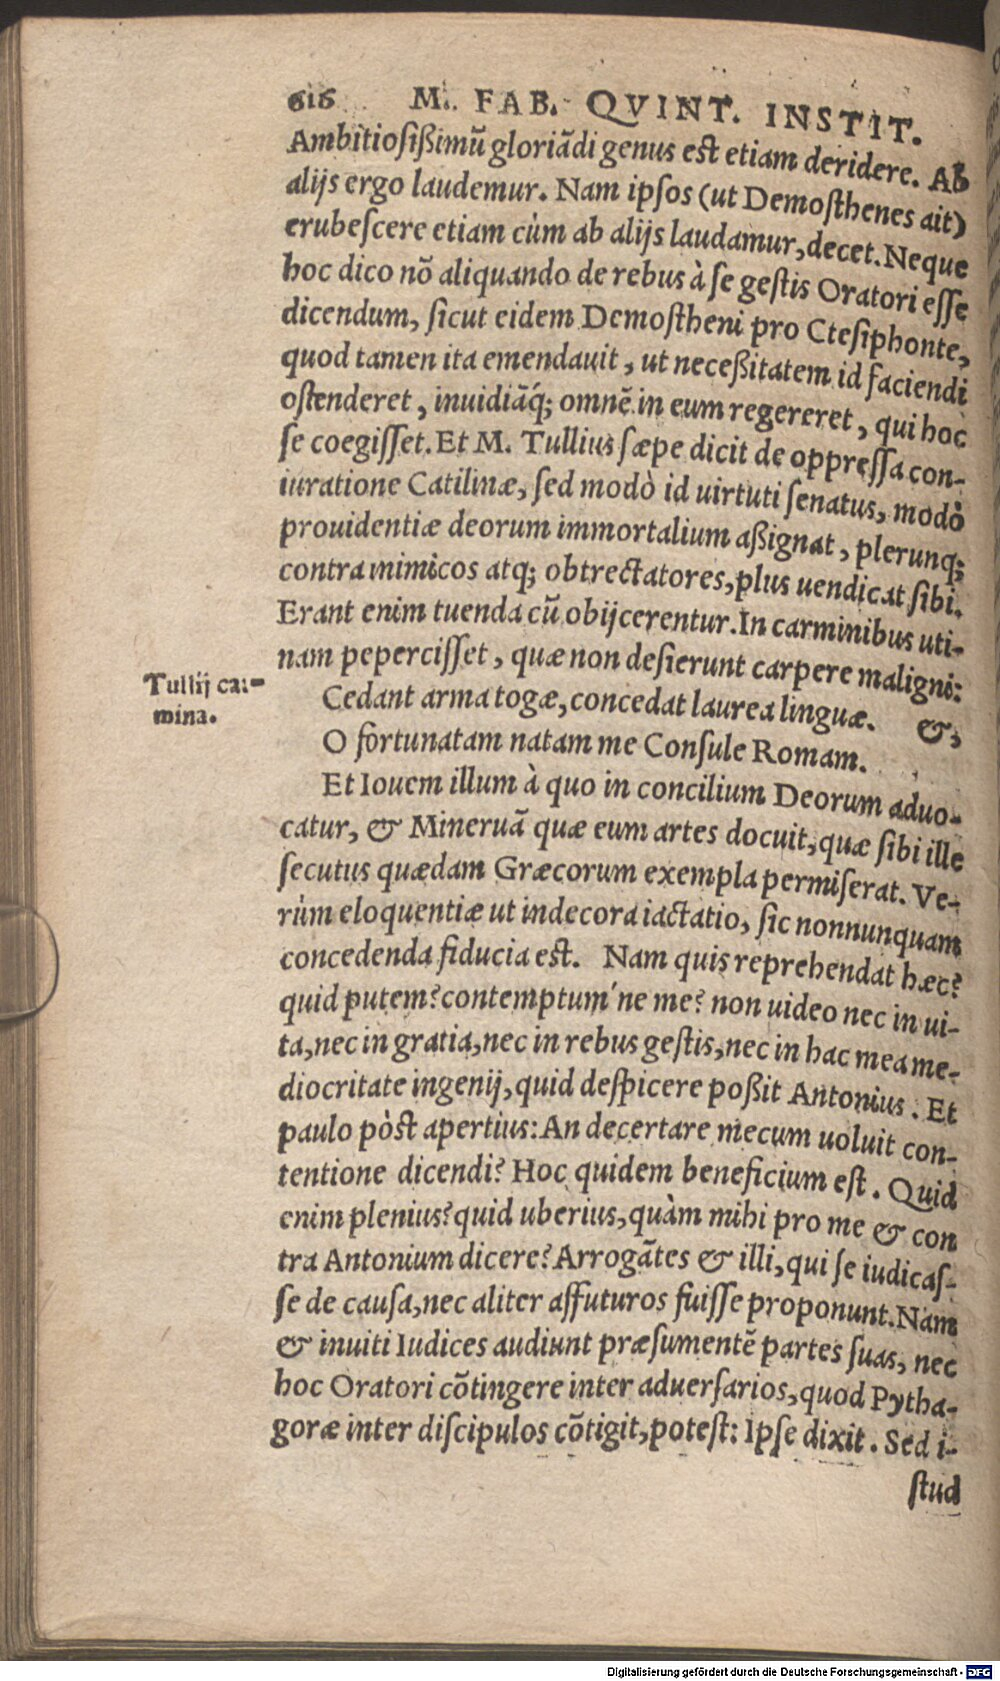 616 M. FAB. QVINT. INSTIT.
Ambitiosißimũ gloriãdi genus est etiam deridere. Ab
alijs ergo laudemur. Nam ipſos (ut Demoſthenes ait)
erubeſcere etiam cùm ab alijs laudamur, decet. Neque
hoc dico nõ aliquando de rebus à ſe geſtis Oratori eſſe
dicendum, ſicut eidem Demoſtheni pro Cteſiphonte,
quod tamen ita emendauit, ut neceßitatem id faciendi
oſtenderet, inuidiãq́; omnẽ in eum regereret, qui hoc
ſe coegiſſet. Et M. Tullius ſæpe dicit de oppreſſa con-
iuratione Catilinæ, ſed modò id uirtuti ſenatus, modò
prouidentiæ deorum immortalium aßignat, plerunq;
contra inimicos atq; obtrectatores, plus uendicat ſibi.
Erant enim tuenda cũ obijcerentur. In carminibus uti-
nam peperciſſet, quæ non deſierunt carpere maligni:
Tullij car-
mina.
Cedant arma togæ, concedat laurea linguæ. &,
O fortunatam natam me Conſule Romam.
Et Iouem illum à quo in concilium Deorum aduo-
catur, & Mineruã quæ eum artes docuit, quæ ſibi ille
ſecutus quædam Græcorum exempla permiſerat. Ve-
rùm eloquentiæ ut indecora iactatio, ſic nonnunquam
concedenda fiducia est. Nam quis reprehendat hæc?
quid putem? contemptum'ne me? non uideo nec in ui-
ta, nec in gratia, nec in rebus geſtis, nec in hac mea me-
diocritate ingenij, quid deſpicere poßit Antonius. Et
paulo pòst apertius: An decertare mecum uoluit con-
tentione dicendi? Hoc quidem beneficium eſt. Quid
enim plenius? quid uberius, quàm mihi pro me & con
tra Antonium dicere? Arrogãtes & illi, qui ſe iudicaſ-
ſe de cauſa, nec aliter affuturos fuiſſe proponunt. Nam
& inuiti Iudices audiunt præſumentẽ partes ſuas, nec
hoc Oratori cõtingere inter aduerſarios, quod Pytha-
goræ inter diſcipulos cõtigit, poteſt: Ipſe dixit. Sed i-
ſtud
Digitalisierung gefördert durch die Deutsche Forschungsgemeinschaft - DFG